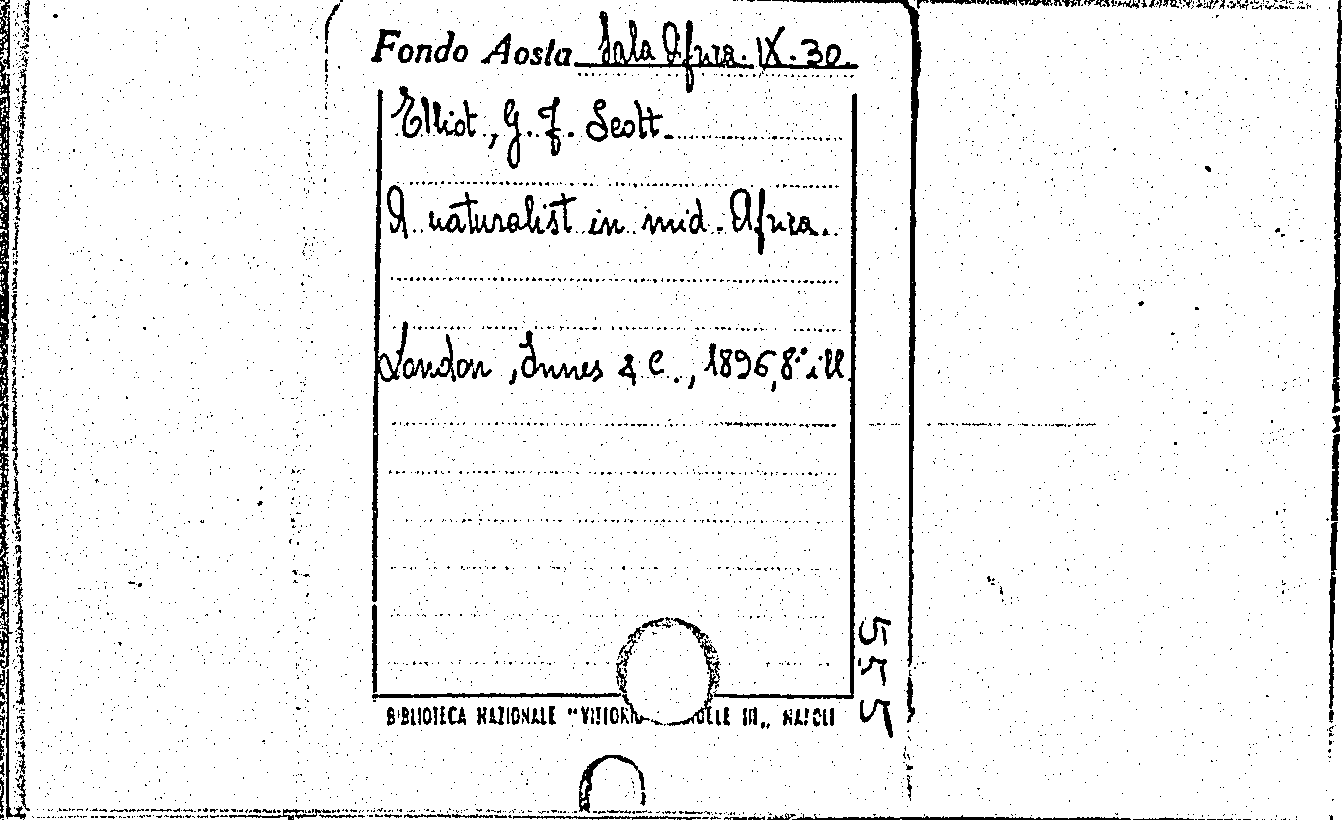 Fondo Aosta Sala Africa. IX. 30.
Elliot, G. F. Scott.
A naturalist in mid. Africa.
London, Innes & C., 1896, 8° ill.
BIBLIOTECA NAZIONALE "VITTORIO III,, NAPOLI
555